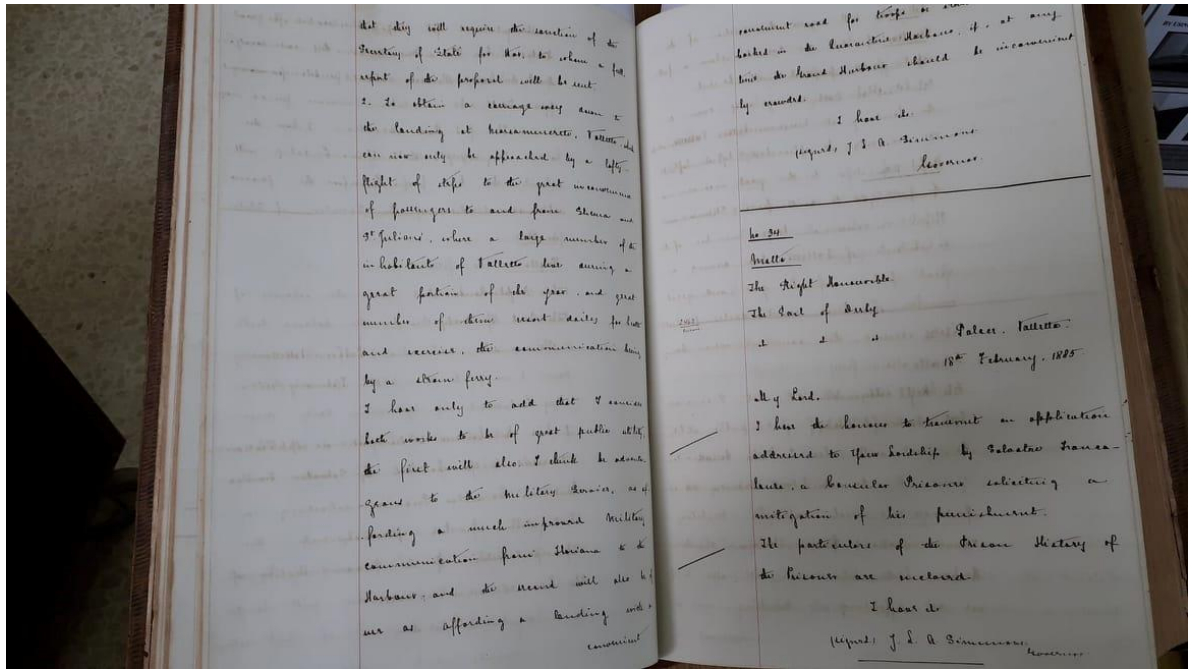 that they will require the sanction of the
Secretary of State for War, to whom a full
report of the proposal will be sent.
2. To obtain a carriage way down to
the landing at Marsamuscetto, Valletta, which
can now only be approached by a lofty
flight of steps to the great inconvenience
of passengers to and from Sliema and
St Julians, where a large number of the
inhabitants of Valletta live during a
great portion of the year, and great
number of them resort daily for bath
and exercise, the communication being
by a steam ferry.
I have only to add that I consider
both works to be of great public utility,
the first will also, I think be advanta-
geous to the Military Service, as af-
fording a much improved Military
communication from Floriana to the
Harbour, and the second will also be of
use as affording a landing with a
convenient
convenient road for troops
barked in the Quarantine Harbour, if, at any
time the Grand Harbour should be inconvenient
ly crowded.
I have &c.
(signed) J. L. A. Simmons
Governor.
No 34
Malta.
The Right Honourable
The Earl of Derby
Palace, Valletta.
18th February, 1885
My Lord.
I have the honour to transmit an application
addressed to Your Lordship by Salvatore
a Consular Prisoner soliciting a
mitigation of his punishment.
The particulars of the Prison History of
the Prisoner are enclosed.
I have &c
(signed) J. L. A Simmons,
Governor